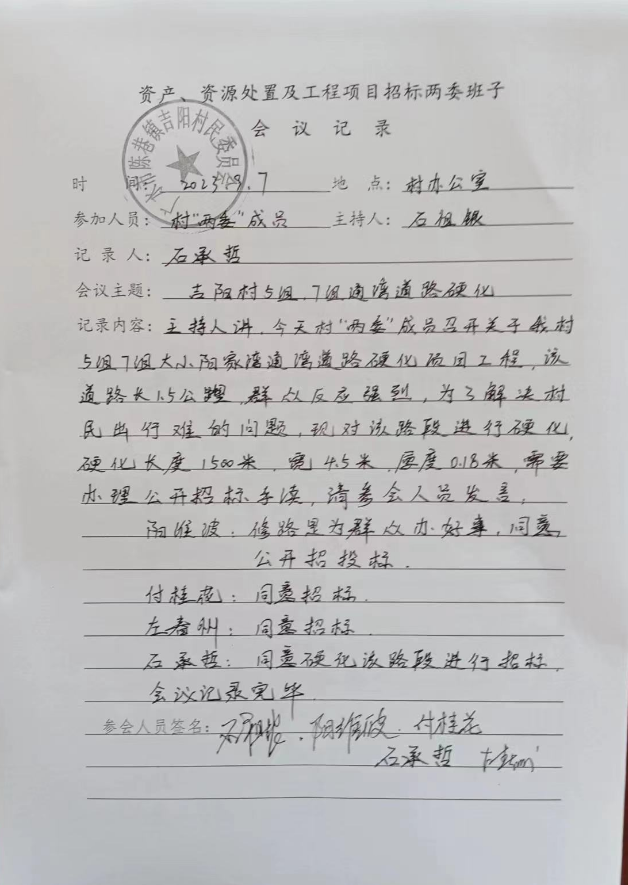 资产、资源处置及工程项目招标两委班子
会议记录
陈巷镇吉阳村民委员会
时 间: 2023.9.7 地 点: 村办公室
参加人员: 村"两委"成员 主持人: 石祖银
记 录 人: 石承哲
会议主题: 吉阳村5组.7组通湾道路硬化
记录内容: 主持人讲.今天村"两委"成员召开关于我村
5组7组大小阳家湾通湾道路硬化项目工程,该
道路长1.5公里,群众反应强烈,为了解决村
民出行难的问题,现对该路段进行硬化,
硬化长度1500米,宽4.5米,厚度0.18米,需要
办理公开招标手续,请参会人员发言,
阳维波: 修路是为群众办好事,同意
公开招投标.
付桂花: 同意招标.
左春州: 同意招标.
石承哲: 同意硬化该路段进行招标.
会议记录完毕
参会人员签名: 石祖银.阳维波.付桂花
石承哲